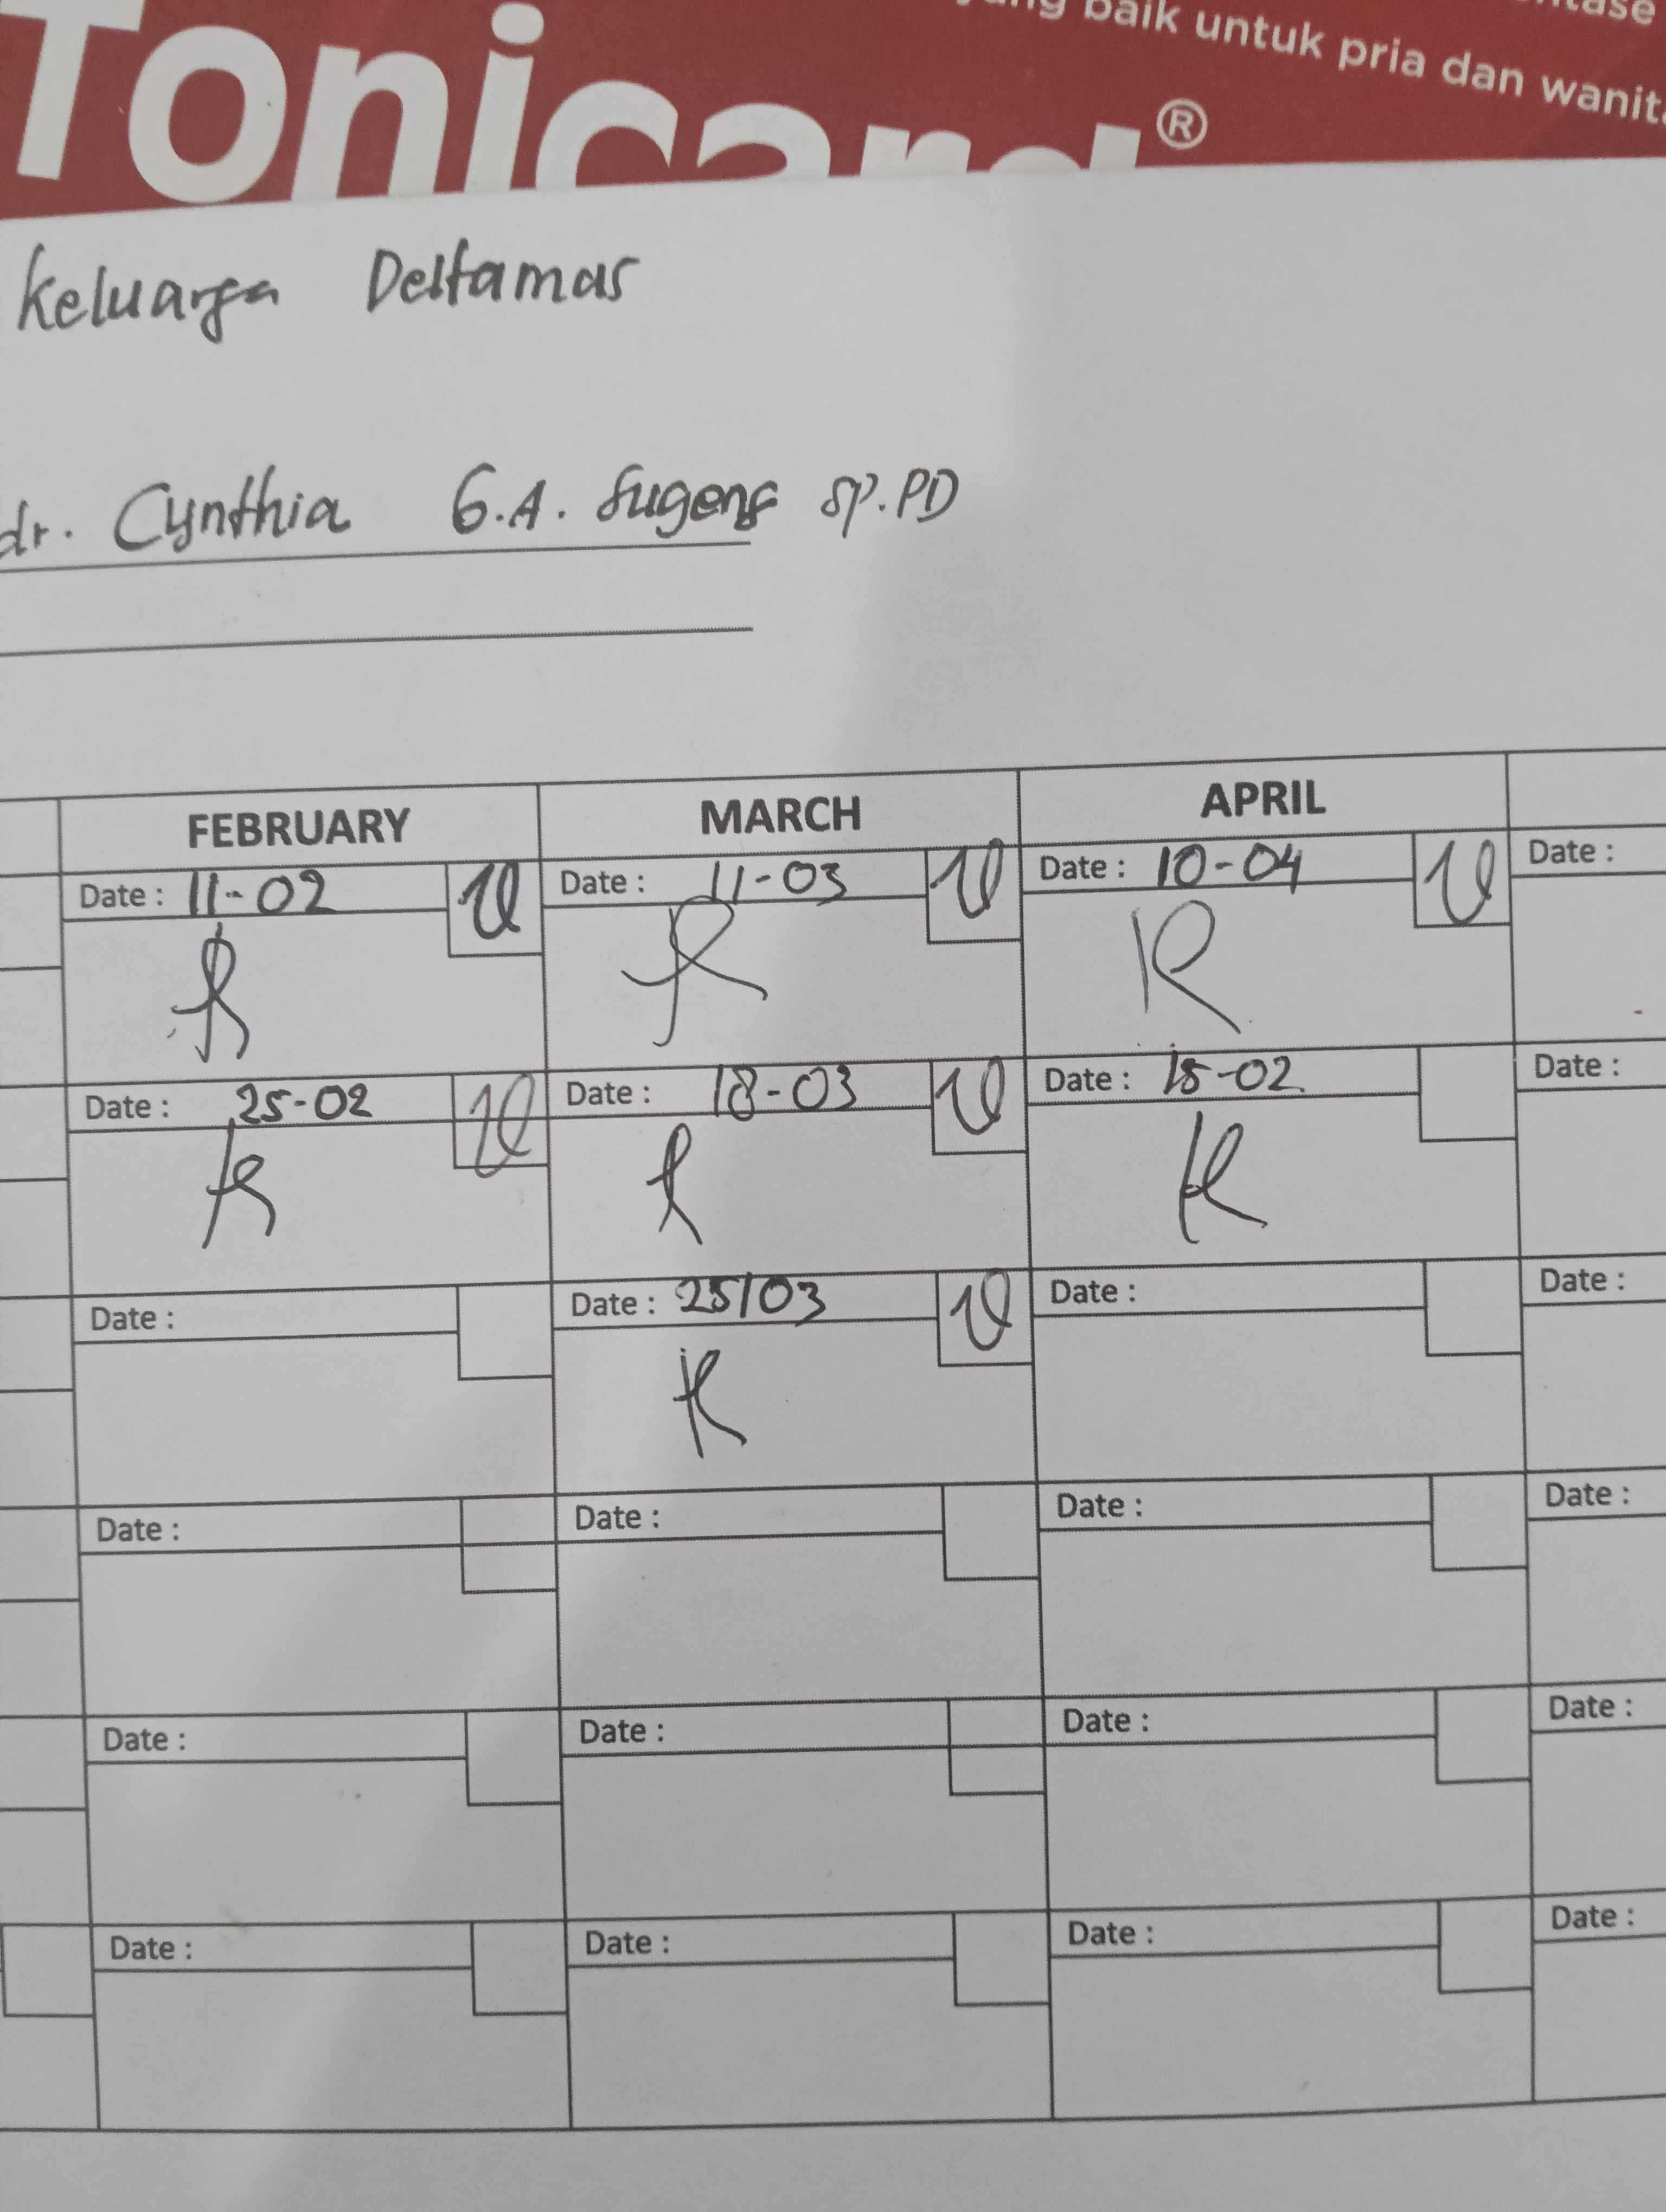 ntase
yang baik untuk pria dan wanita
Tonicard®
Keluarga Deltamas
dr. Cynthia G.A. Sugeng Sp.PD
FEBRUARY MARCH APRIL
Date : 11-02 Date : 11-03 Date : 10-04 Date :
Date : 25-02 Date : 18-03 Date : 15-02 Date :
Date : Date : 25/03 Date : Date :
Date : Date : Date : Date :
Date : Date : Date : Date :
Date : Date : Date : Date :